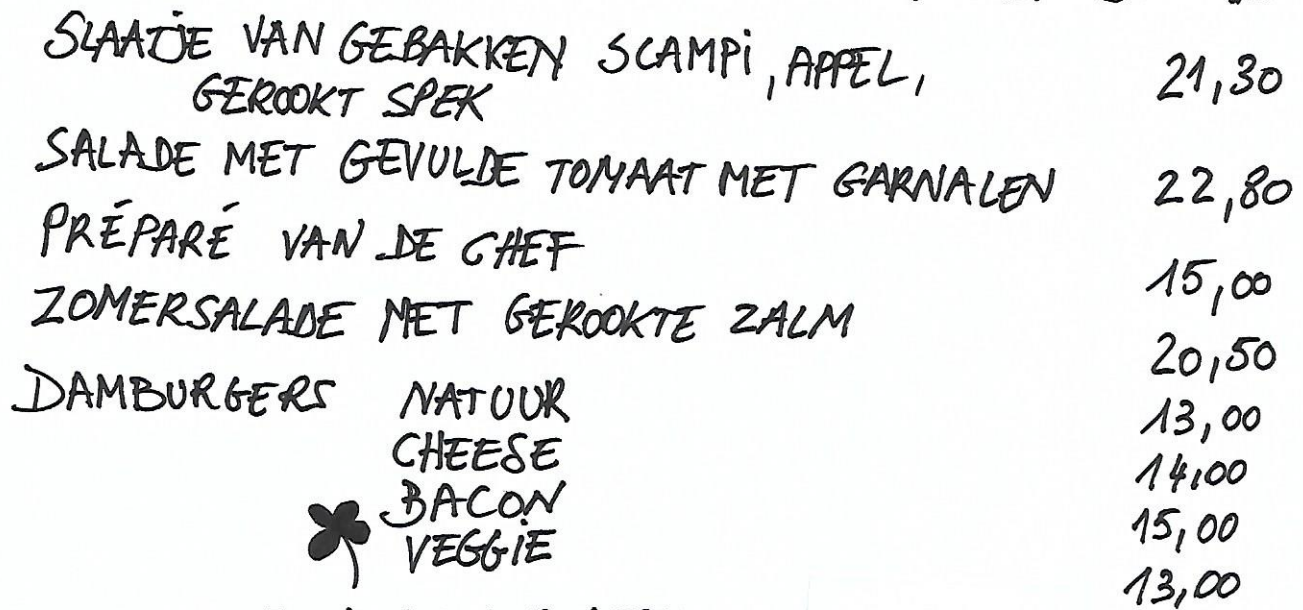 SLAATJE VAN GEBAKKEN SCAMPi, APPEL,
GEROOKT SPEK 21,30
SALADE MET GEVULDE TOMAAT MET GARNALEN 22,80
PRÉPARÉ VAN DE CHEF 15,00
ZOMERSALADE MET GEROOKTE ZALM 20,50
DAMBURGERS NATUUR 13,00
CHEESE 14,00
BACON 15,00
VEGGiE 13,00